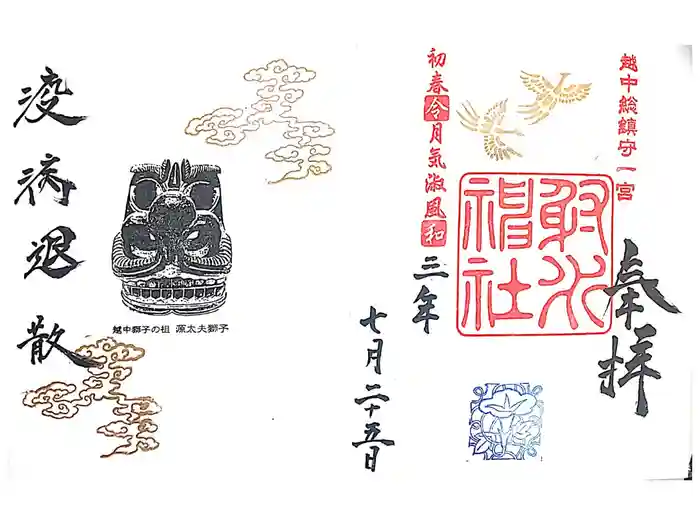 越中総鎮守一宮
奉拝
射水神社
初春令月氣淑風和
三年
七月二十五日
疫病退散
越中獅子の祖 源太夫獅子